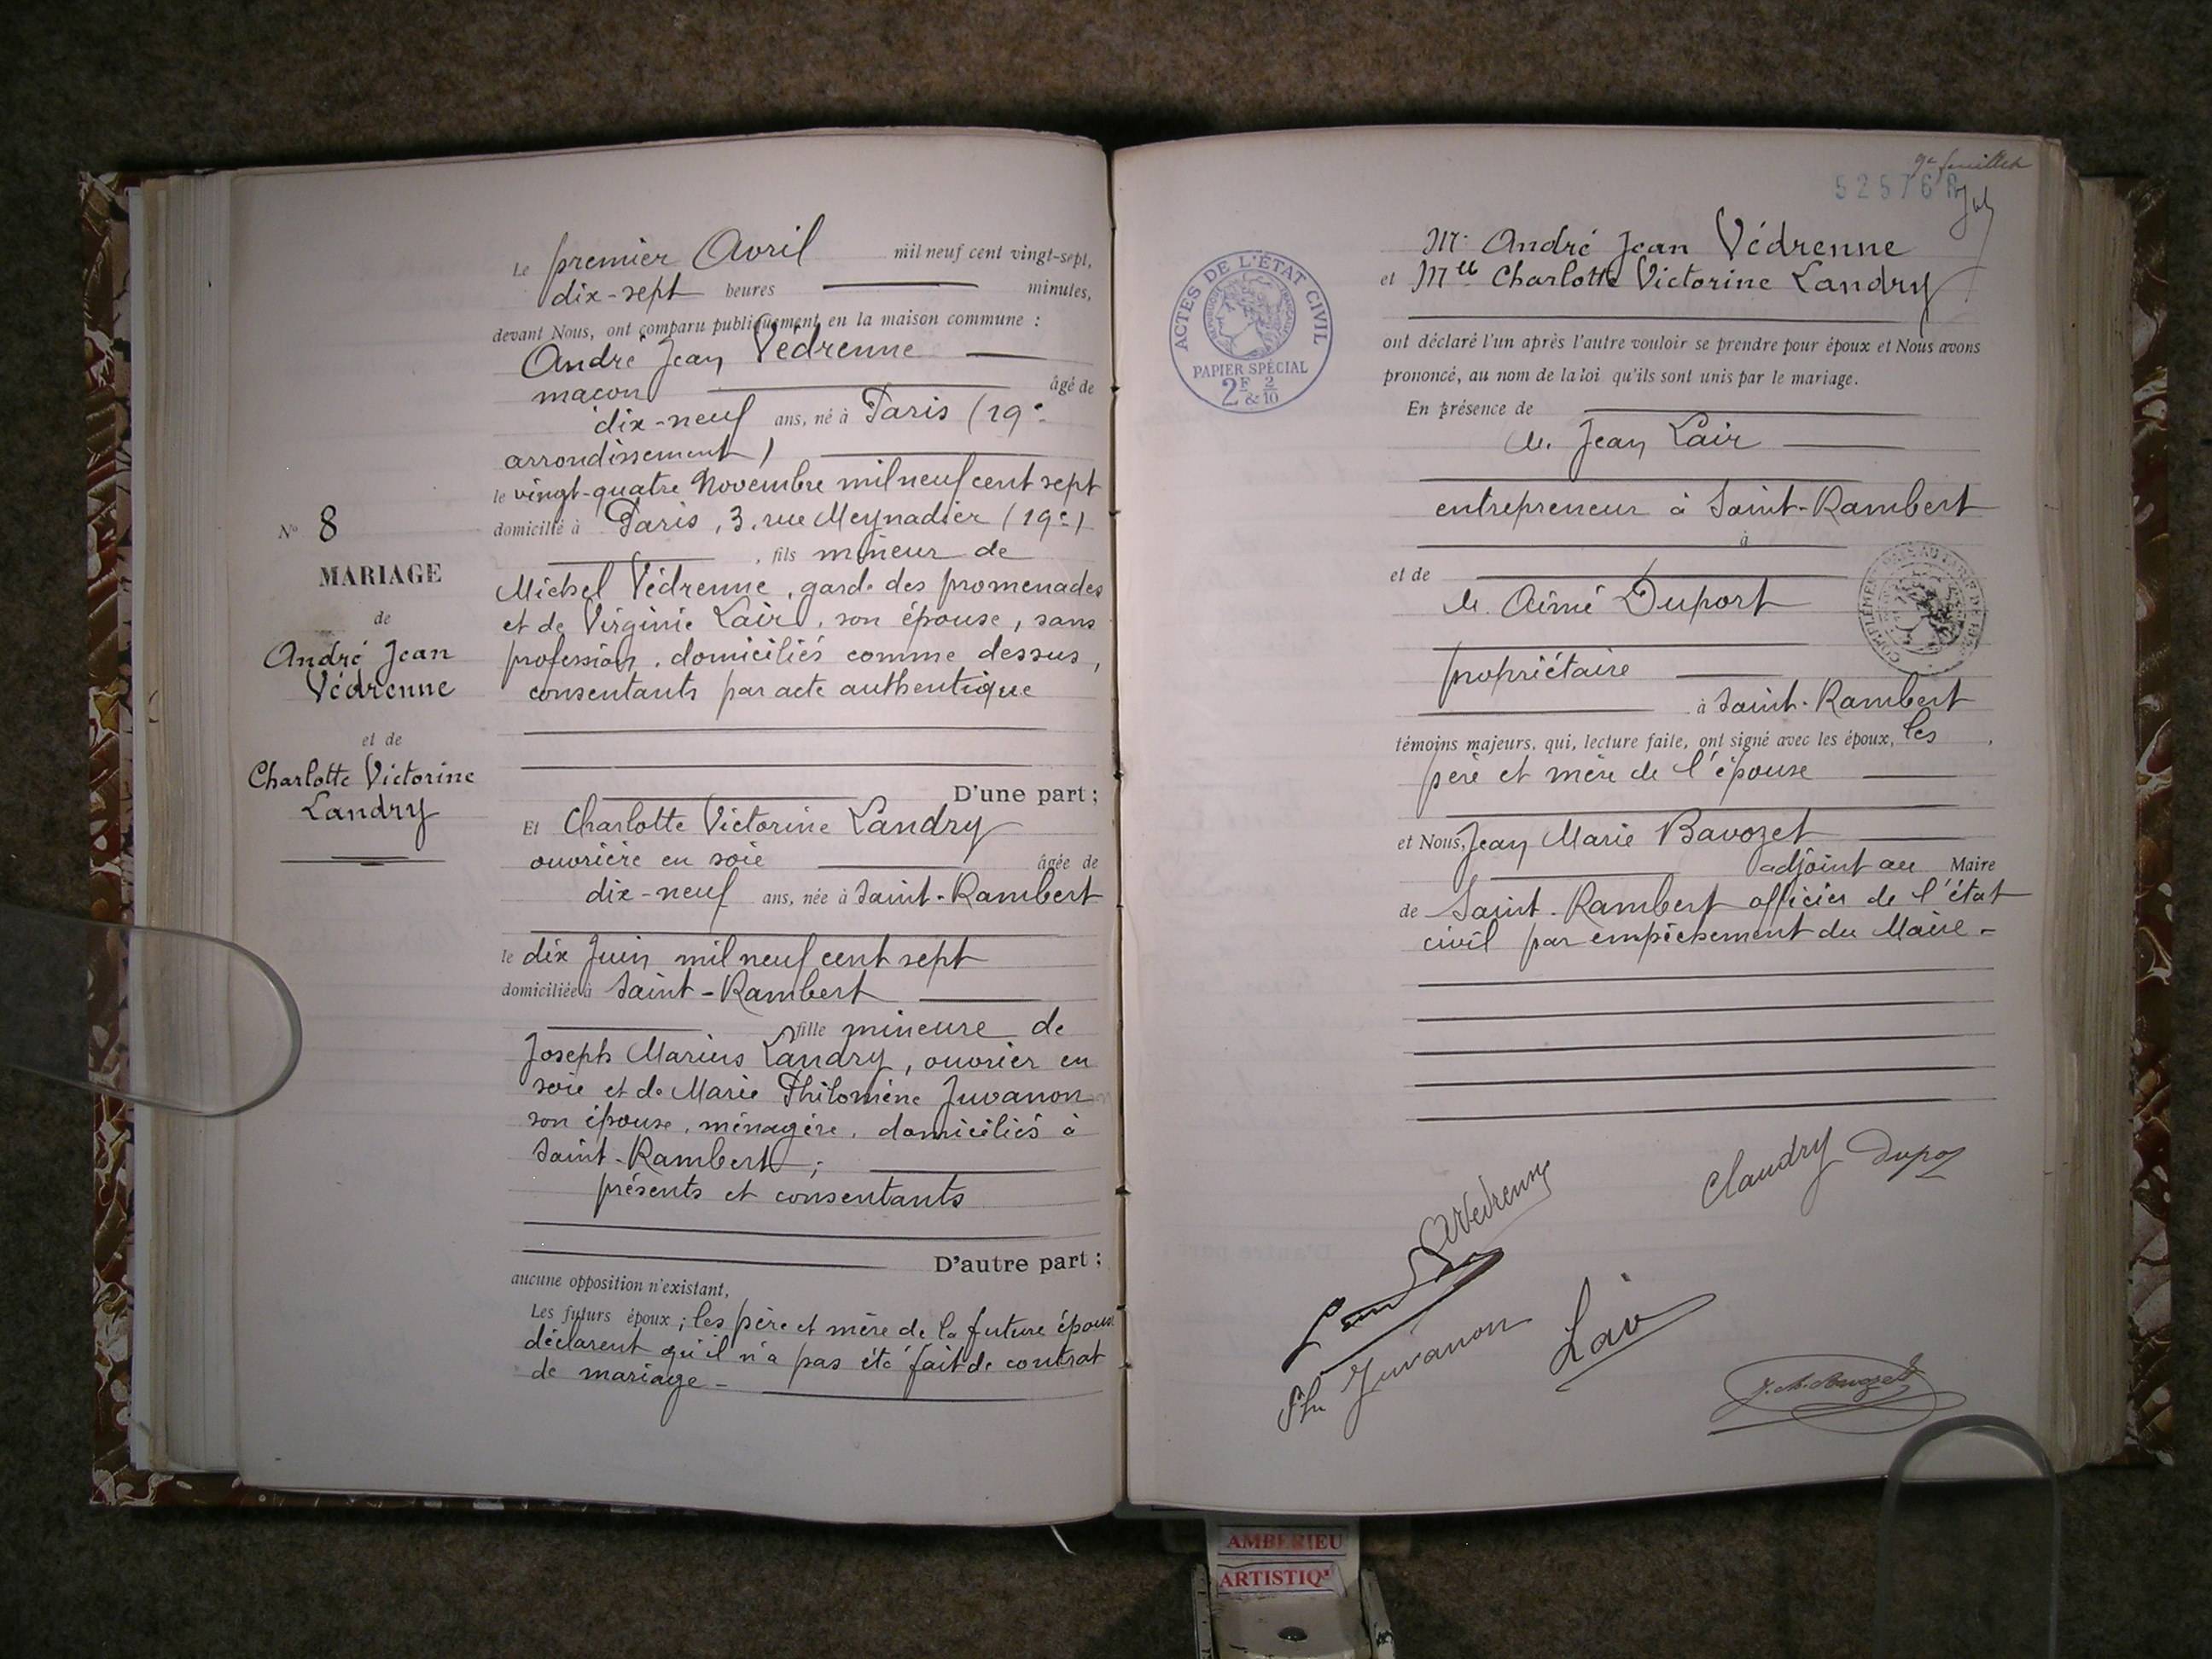 Le premier Avril mil neuf cent vingt-sept,
dix-sept heures minutes,
devant Nous, ont comparu publiquement en la maison commune :
André Jean Védrenne
maçon âgé de
dix-neuf ans, né à Paris (19e
arrondissement)
le vingt-quatre Novembre mil neuf cent sept
domicilié à Paris, 3, rue Meynadier (19e)
, fils mineur de
Michel Védrenne, garde des promenades
et de Virginie Lair, son épouse, sans
profession, domiciliés comme dessus,
consentants par acte authentique
D'une part ;
Et Charlotte Victorine Landry
ouvrière en soie âgée de
dix-neuf ans, née à Saint-Rambert
le dix Juin mil neuf cent sept
domiciliée à Saint-Rambert
fille mineure de
Joseph Marius Landry, ouvrier en
soie et de Marie Philomène Juvanon
son épouse, ménagère, domiciliés à
Saint-Rambert ;
présents et consentants
D'autre part ;
aucune opposition n'existant,
Les futurs époux ; les père et mère de la future épouse
déclarent qu'il n'a pas été fait de contrat
de mariage -
No 8
MARIAGE
de
André Jean
Védrenne
et de
Charlotte Victorine
Landry
9e feuillet
52576
ACTES DE L'ÉTAT CIVIL
RÉPUBLIQUE FRANÇAISE
PAPIER SPÉCIAL
2F & 2/10
Mr André Jean Védrenne
et Mlle Charlotte Victorine Landry
ont déclaré l'un après l'autre vouloir se prendre pour époux et Nous avons
prononcé, au nom de la loi qu'ils sont unis par le mariage.
En présence de
M. Jean Lair
entrepreneur à Saint-Rambert
à
et de
M. Aimé Duport
propriétaire
à Saint-Rambert
témoins majeurs, qui, lecture faite, ont signé avec les époux, les ,
père et mère de l'épouse
et Nous, Jean Marie Bavozet
adjoint au Maire
de Saint-Rambert officier de l'état
civil par empêchement du Maire -
Clandry Dupor
AVedrenne
Juvanon
Lair
J. M. Bavozet
AMBERIEU
ARTISTIQ